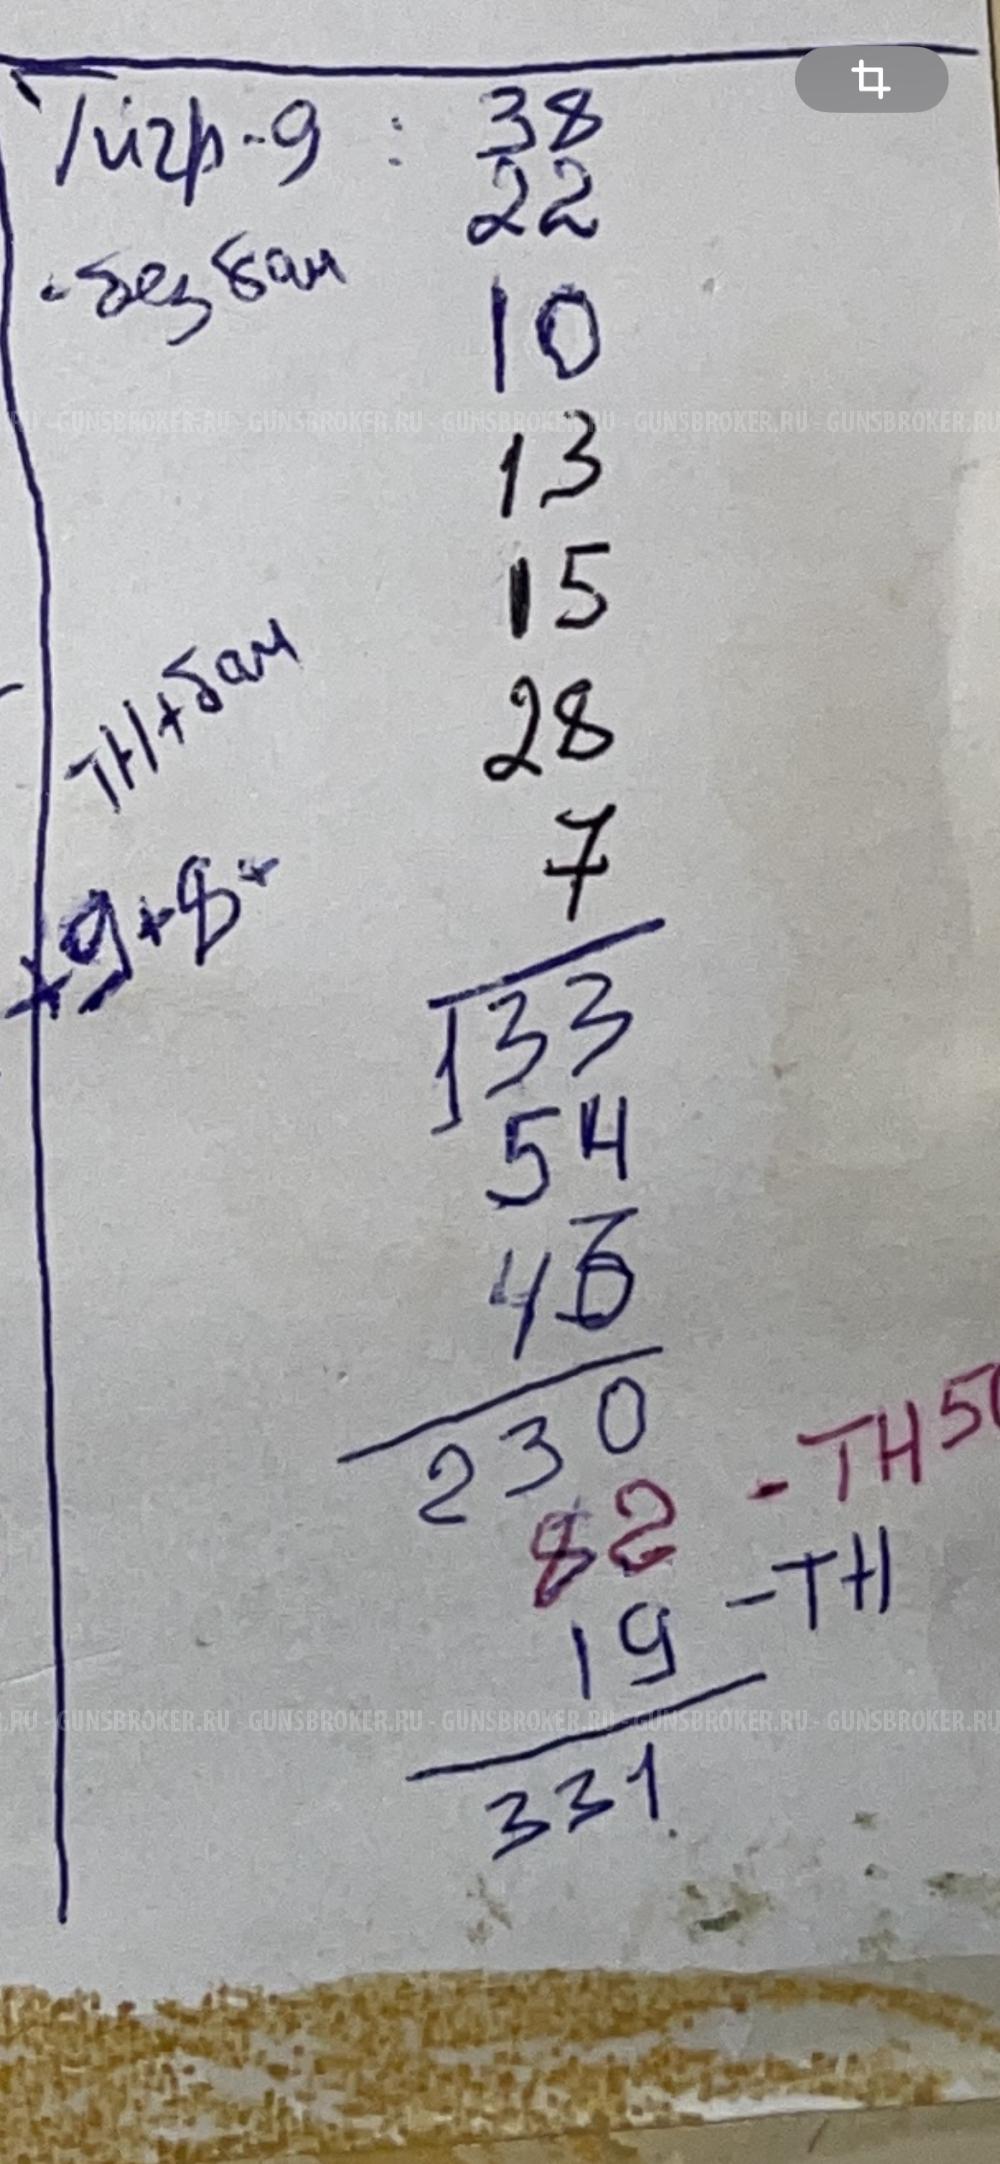 1 игр-9 : 38
22
-без бан
10
RU - GUNSBROKER.RU - GUNSBROKER.RU - GUNSBROKER.RU - GUNSBROKER.RU
13
15
ТН+бан
28
7
+9+8+
133
54
43
230
82 - ТН 50
19 - ТН
.RU - GUNSBROKER.RU - GUNSBROKER.RU - GUNSBROKER.RU - GUNSBROKER.RU
331